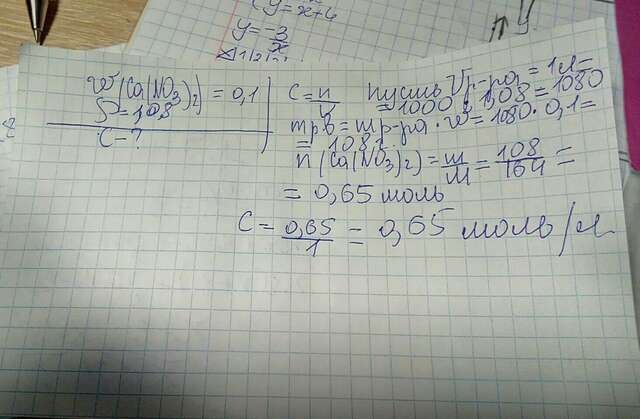 y=x+6
y=-3/x
w(Ca(NO₃)₂) = 0,1
ρ=1,08
C-?
C=n/V
пусть Vр-ра = 1л=
=1000 · 1,08 = 1080
mр.в = mр-ра · w = 1080 · 0,1=
= 108г
n(Ca(NO₃)₂) = m/M = 108/164 =
= 0,65 моль
C = 0,65/1 = 0,65 моль/л